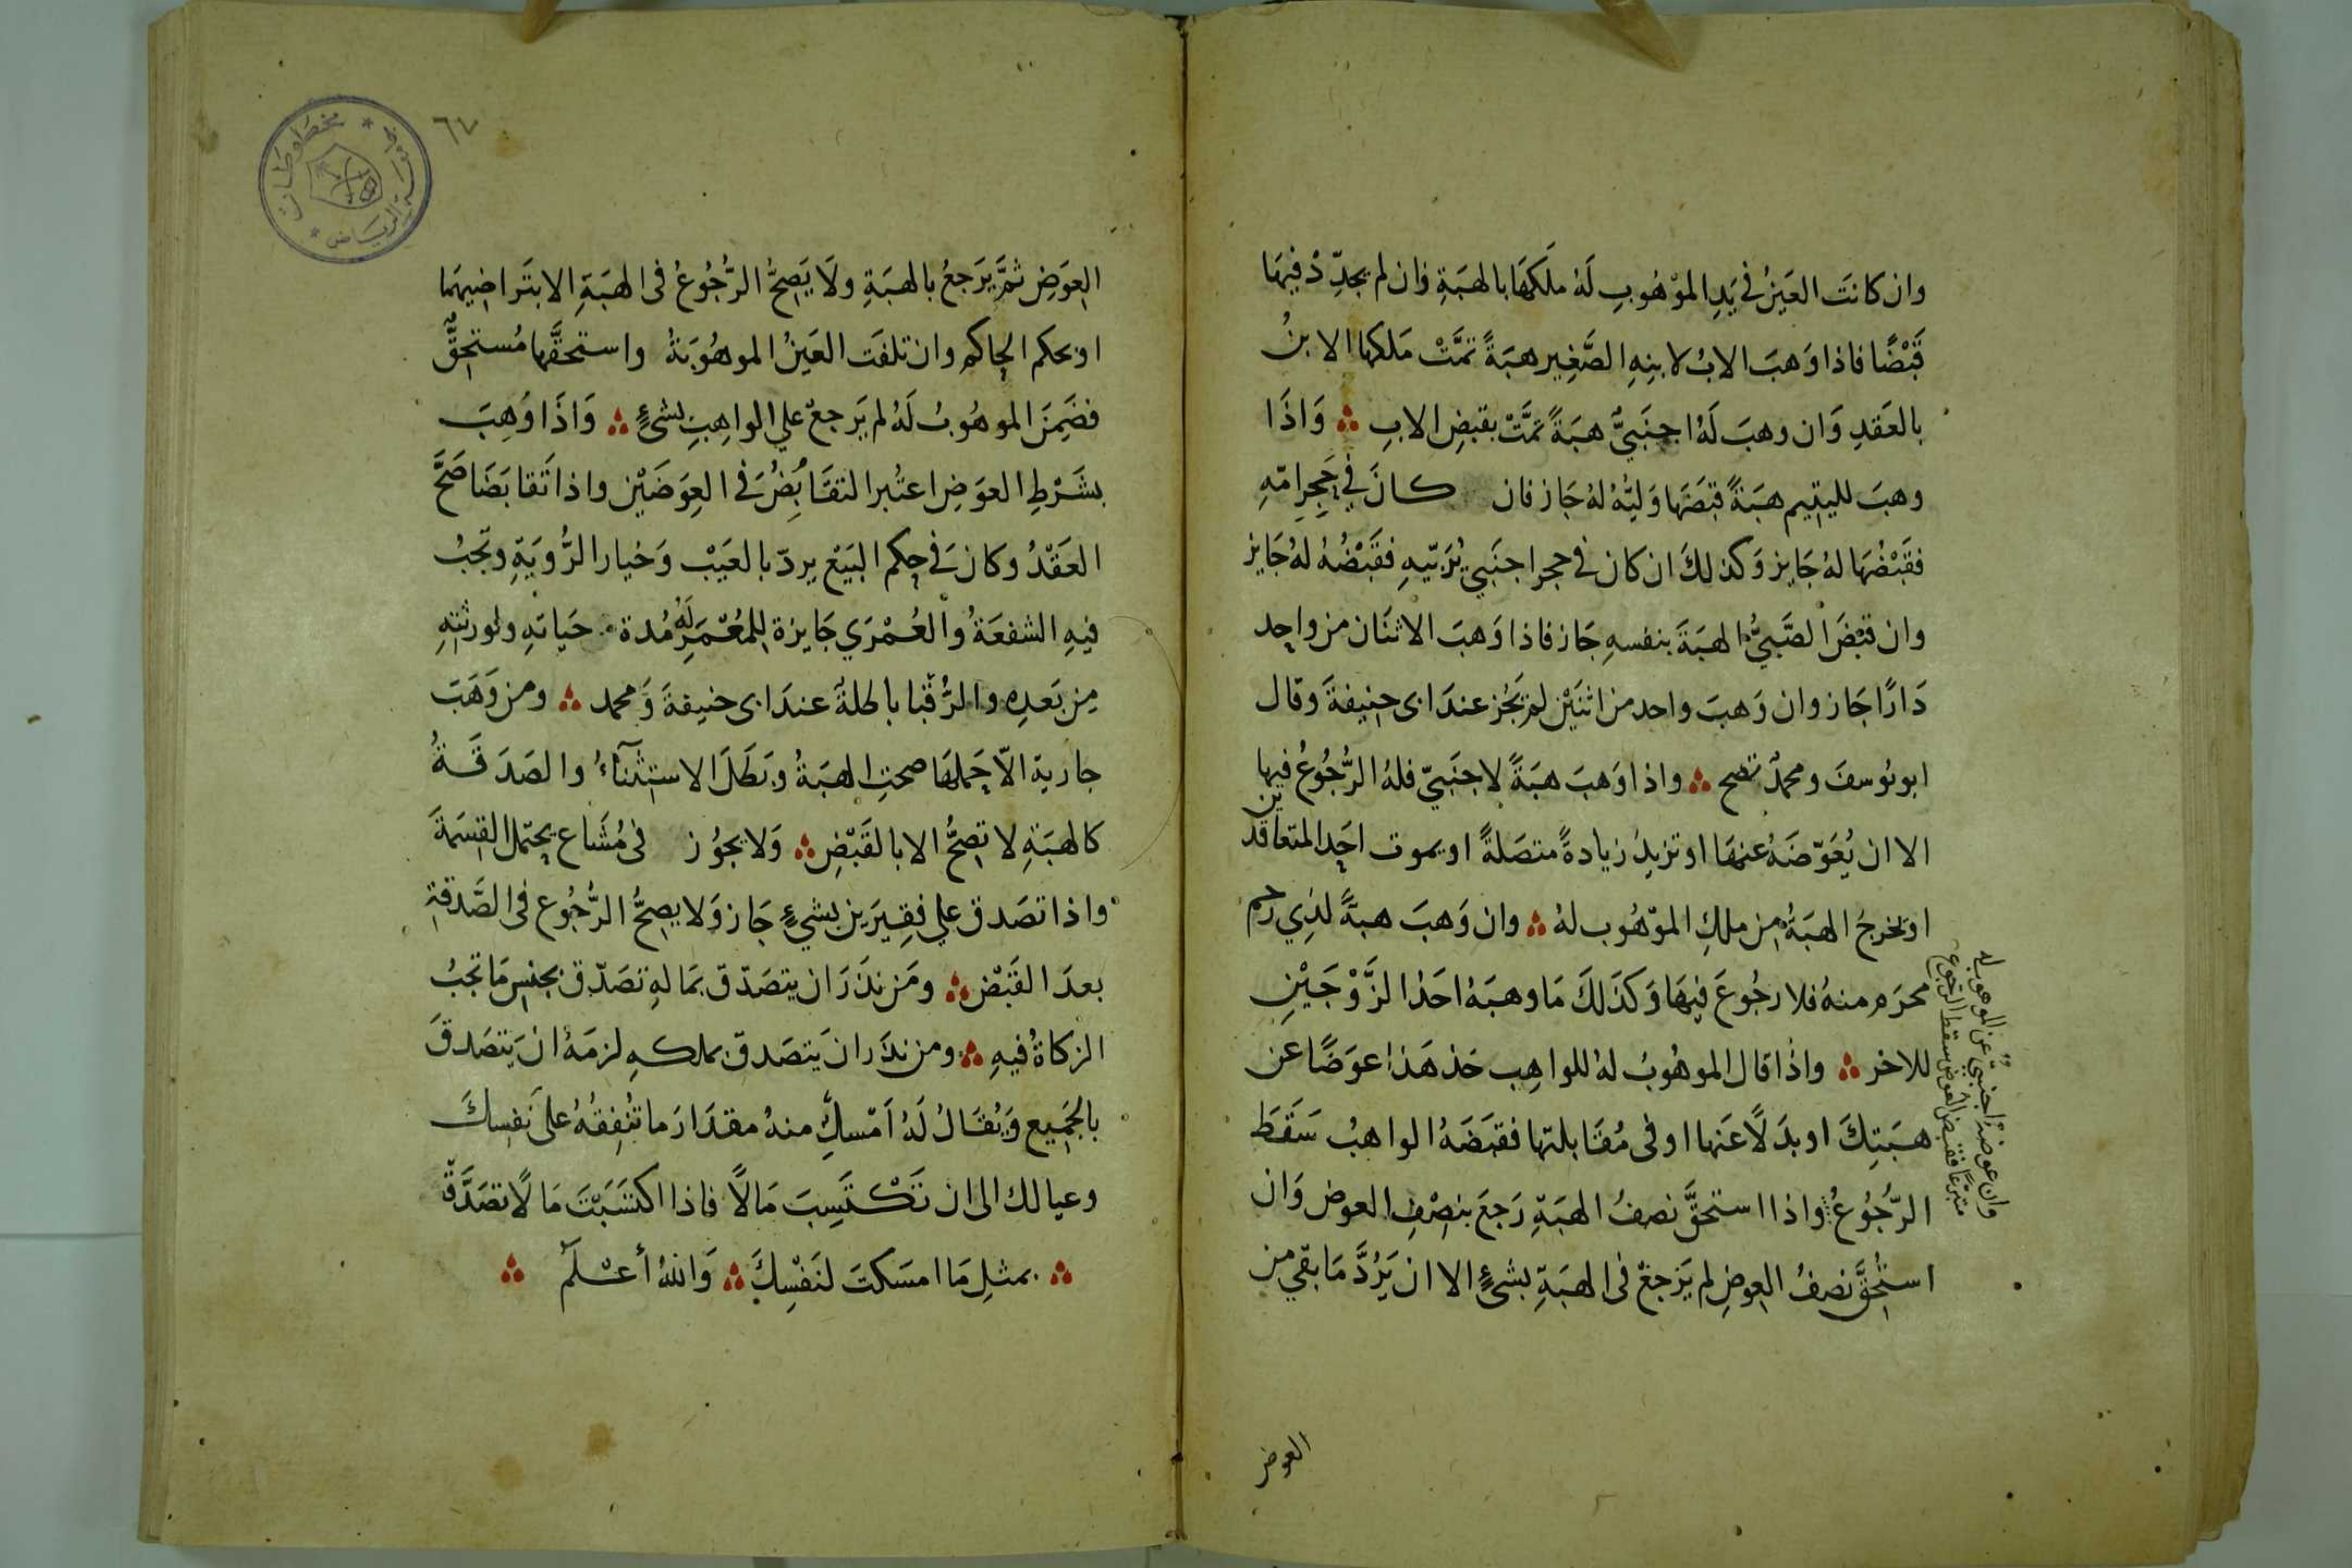 وان كانَت العَينُ في يَدِ الموْهُوبِ لَهُ ملَكَهَا بالهبَةِ وَان لم يجدِّدْ فيهَا
قَبْضًا فاذا وَهبَ الابُ لابنِهِ الصَّغِير هبَةً تمَّتْ مَلكها الابنُ
بالعَقدِ وَان وهبَ لَهُ اجنَبيٌّ هبَةً تمَّتْ بقبضِ الابِ ⁂ وَاذَا
وهبَ لليتيم هبَةً قبَضَهَا وَليُّهُ لهُ جَاز فان كانَ في حَجِرِ امّهِ
فقَبْضُهَا لهُ جَايز وَكذلكَ ان كان في حجر اجنَبي يُرَبّيهِ فقَبْضُهُ لهُ جَايز
وان قبَضَ الصَّبيُّ الهبَةَ بنفسهِ جَاز فاذا وَهبَ الاثنَان من واحِد
دَارًا جَاز وان وَهبَ واحد من اثنَيْن لم يَجُز عندَ ابى حنِيفةَ وقال
ابويُوسفَ ومحمدٌ تصح ⁂ واذا وَهبَ هبَةً لاجنَبيّ فلهُ الرُّجُوعُ فيها
الا ان يُعَوّضَهُ عنهَا او تزيدُ زيادةً متصَلةً او يموت احَد المتعاقدين
او يخرجُ الهبَةُ مِن ملكِ الموّهُوب لهُ ⁂ وان وَهبَ هبةً لذِي رحم
محرَم منهُ فلا رجُوعَ فيهَا وَكذَلكَ مَا وهبَهُ احَدُ الزَّوْجَيْنِ
للاخر ⁂ واذا قال الموهُوبُ لهُ للواهِب خذ هَذا عوَضًا عن
هبَتِكَ او بدَلًا عَنها او في مُقَابلتها فقبَضَهُ الواهبُ سَقَطَ
الرُّجُوعُ ⁂ واذا استحقَّ نصفُ الهبَةِ رَجعَ بنِصْفِ العوض وَان
استُحِقَّ نصفُ العِوضِ لم يَرجعْ في الهبَةِ بشيءٍ الا ان يَرُدَّ مَا بقي من
وان عوضهُ اجنبيٌّ عن الموهوب له
متبرّعًا فقبض العوض سقط الرجوع
العوض
٦٧
مخطوطات
الرياض
العِوَضِ ثمَّ يَرَجعُ بالهبَةِ ولَا يَصِحُّ الرُّجُوعُ فى الهبَةِ الا بتَراضيهمَا
او بحكم الحاكم وان تلفَت العَينُ الموهُوبَةُ واستحقَّها مُستحِقٌّ
فضَمِنَ الموهُوبُ لَهُ لم يَرجعْ علي الواهِبِ بشيءٍ ⁂ وَاذَا وُهِبَ
بشَرْطِ العوَضِ اعتُبر التقَابُضُ في العِوَضَيْن واذا تَقابَضَا صَحَّ
العَقْدُ وكانَ في حكم البَيْع يردّ بالعَيْب وَخيار الرُّويَةِ وتجبُ
فيهِ الشفعَةُ والعُمْرَي جَايزة لِلمُعْمَرِ لَهُ مُدة حَياتهِ ولورثتهِ
مِن بَعدِهِ والرُّقبا باطلةَ عندَ ابى حنيفةَ وَمحمد ⁂ ومن وَهَبَ
جاريةِ الّا حَملهَا صحتِ الهبَةُ وبَطَلَ الاستِثنآءُ والصَدَقَةُ
كالهبَةِ لا تصِحُّ الا بالقَبْضِ ⁂ وَلا يجوُز في مُشَاع يحتمل القِسمَةَ
واذا تصَدق علي فقِيرَين بشيءٍ جَاز وَلا يصِحُّ الرُّجُوع في الصَّدقةِ
بعدَ القَبْض ⁂ ومَن نذَرَ ان يتصَدّق بمَالهِ تصَدّق بجنسِ مَا تجبُ
الزكاةُ فيهِ ⁂ ومن نذَر ان يَتصَدق بملكهِ لزمَهُ ان يَتصَدقَ
بالجَميع وَيُقَالُ لَهُ اَمْسك منهُ مقدَارَ ما تُنفِقُهُ على نَفسِكَ
وعيالك الى ان تَكْتَسِبَ مَالًا فاذا اكتسَبْتَ مَالًا تصَدَّق
⁂ بمثلِ مَا امسَكتَ لنَفْسِكَ ⁂ وَاللهُ أعْلَم ⁂